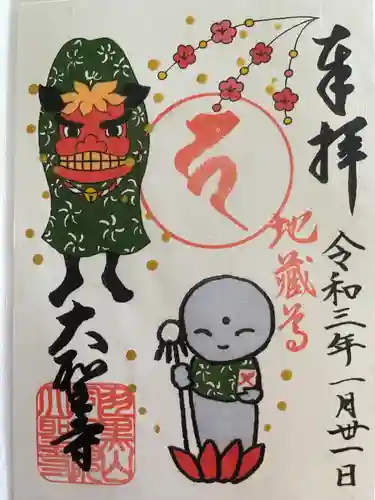 奉拝
令和三年一月卅一日
地蔵尊
大聖寺